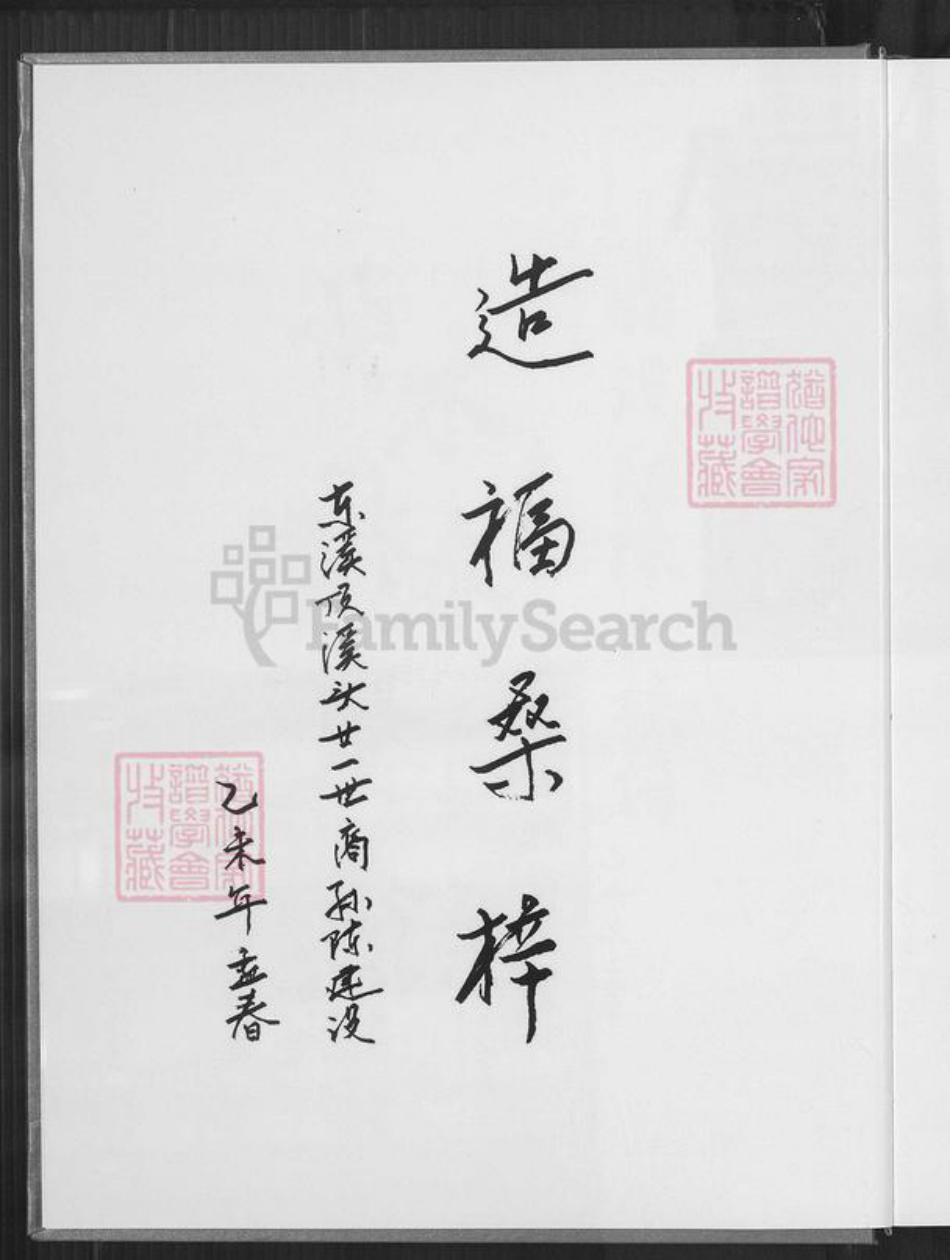 造福桑梓
东溪顶溪头廿一世裔孙陈建设
乙未年孟春
猶他家
譜學會
收藏
猶他家
譜學會
收藏
FamilySearch